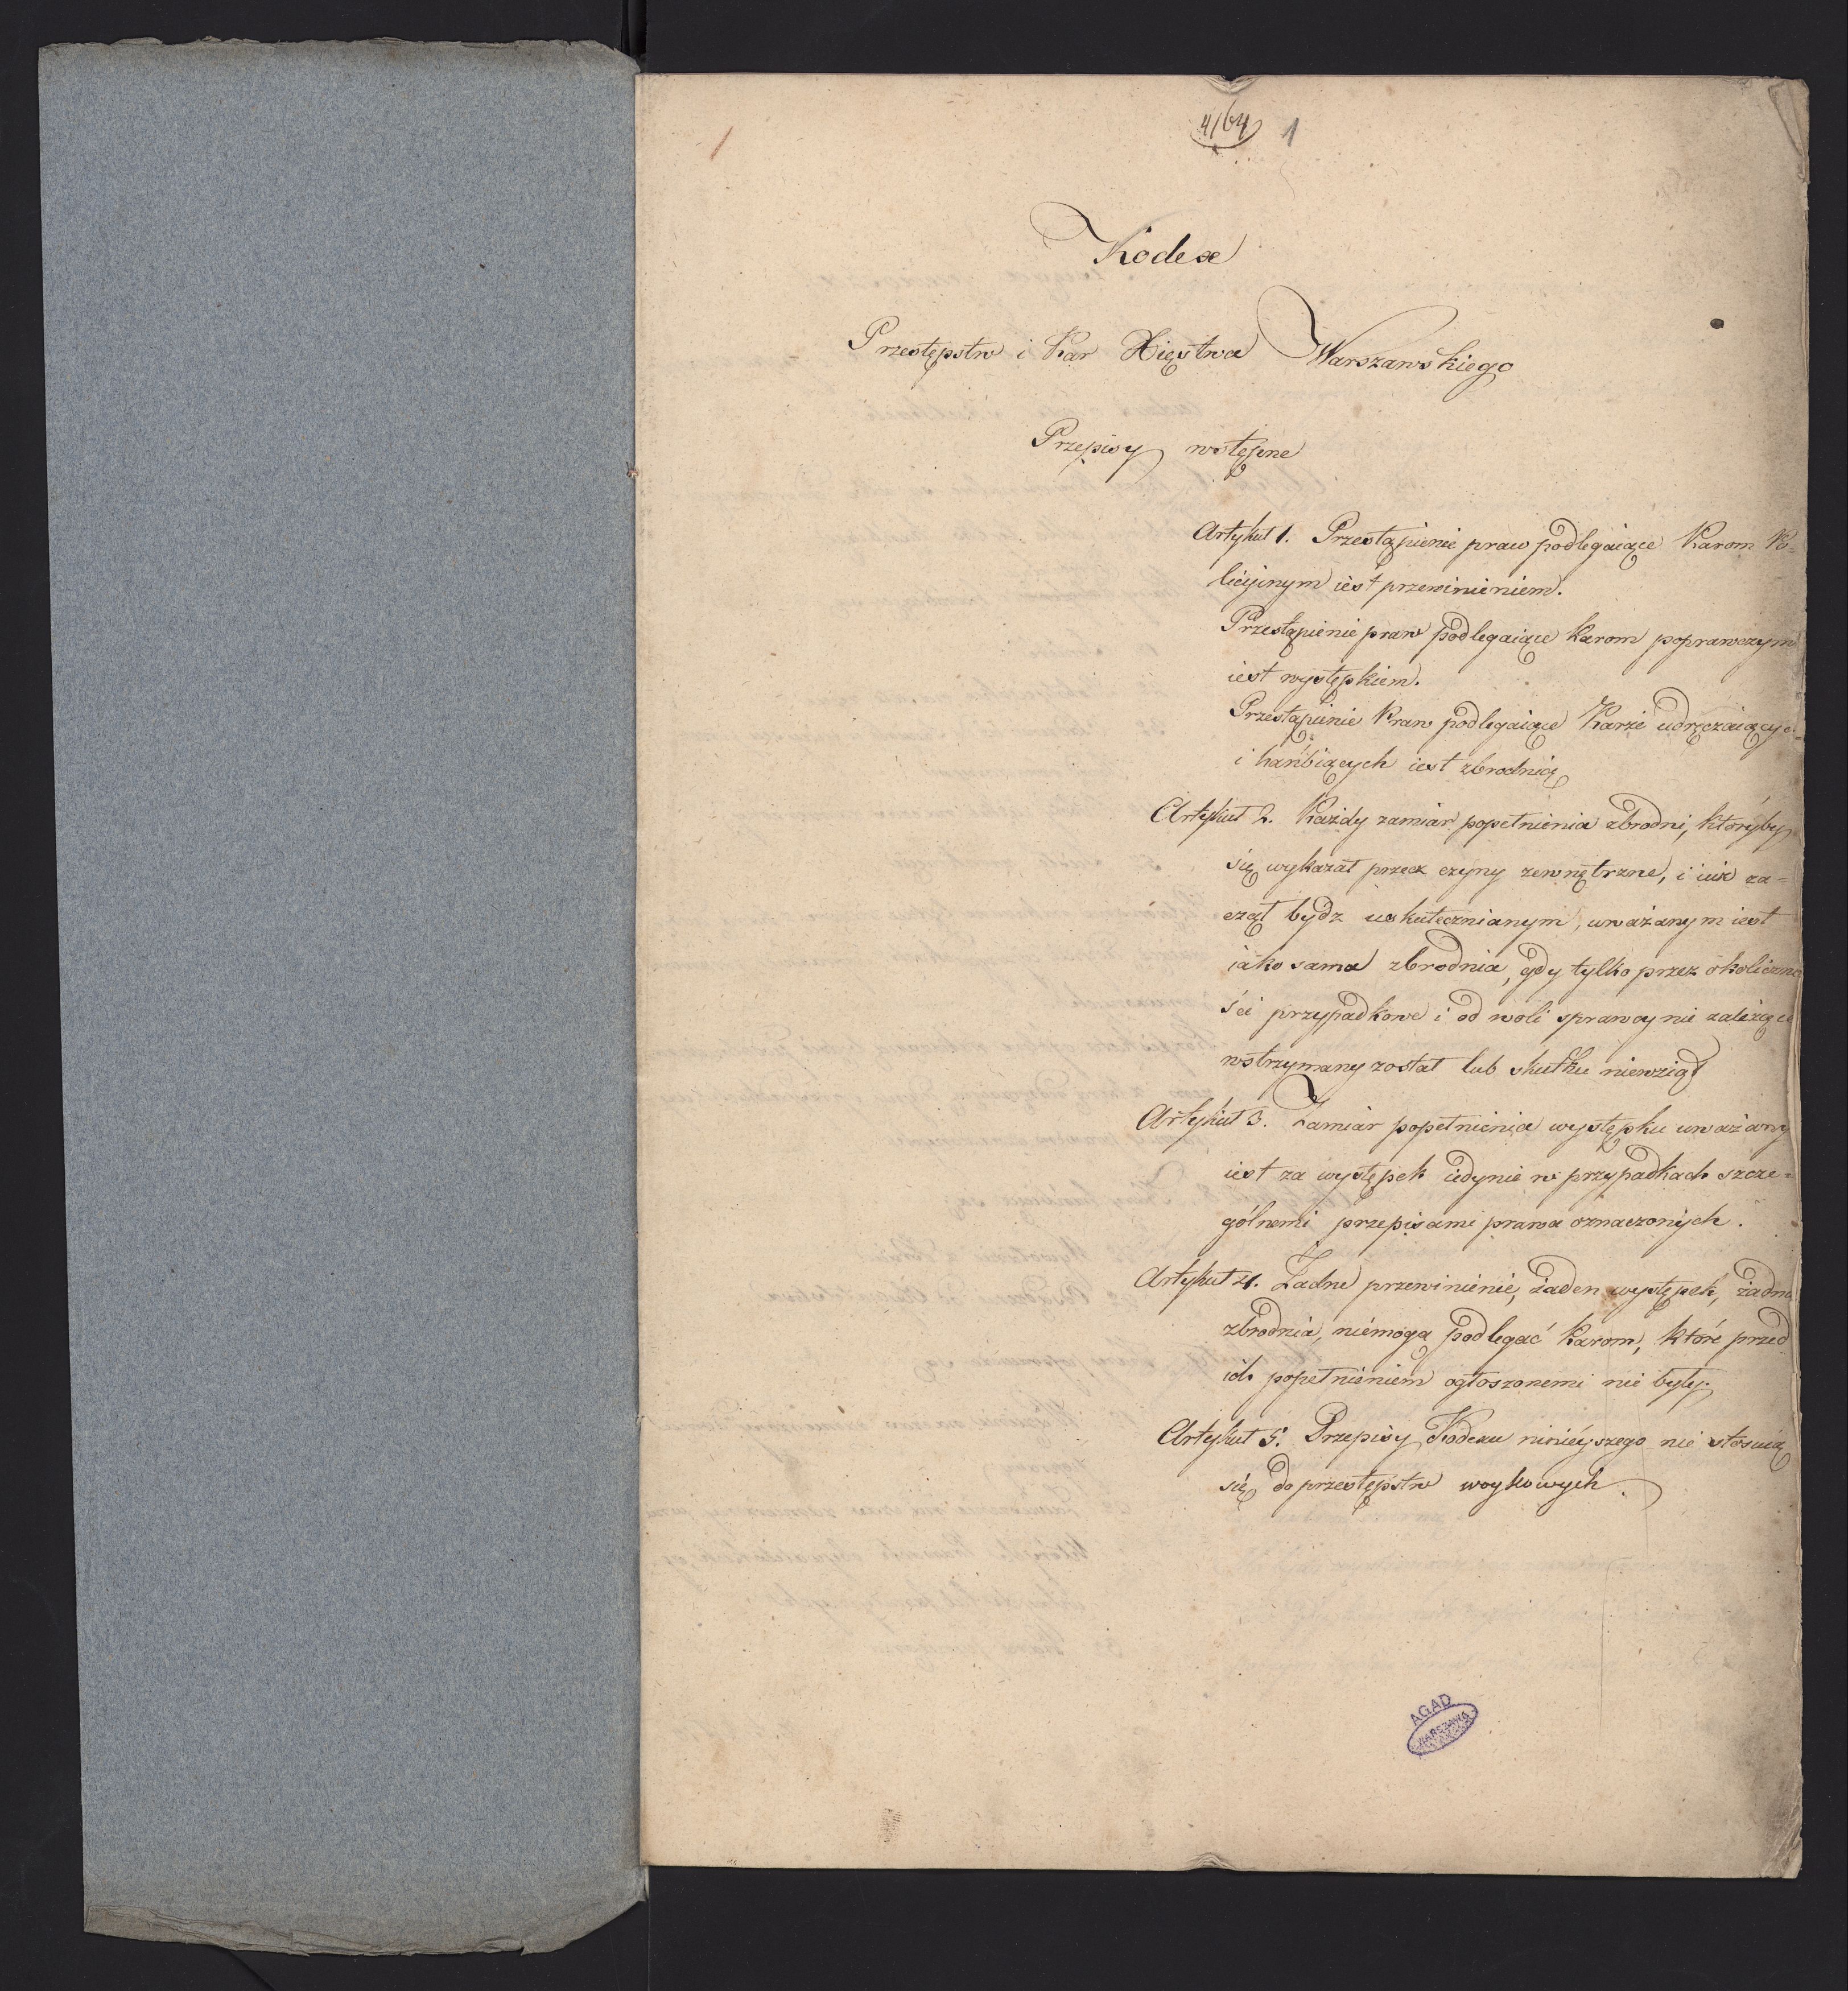 4/64 1
Kodex
Przestępstw i Kar Xięstwa Warszawskiego
Przepisy wstępne
Artykuł 1. Przestąpienie praw podlegaiące Karom Po-
licyjnym iest przewinieniem.
Przestąpienie praw podlegaiące Karom poprawczym
iest występkiem.
Przestąpienie Praw podlegaiące Karze udręczaiących
i hańbiących iest zbrodnią
Artykuł 2. Każdy zamiar popełnienia zbrodni, któryby
się wykazał przez czyny zewnętrzne, i iuż za-
czął bydz uskutecznianym, uważanym iest
iako sama zbrodnia, gdy tylko przez okoliczno
ści przypadkowe i od woli sprawcy nie zależące
wstrzymany został lub skutku niewziął
Artykuł 3. Zamiar popełnienia występku uważany
iest za występek iedynie w przypadkach szcze-
gólnemi przepisami prawa oznaczonych.
Artykuł 4. Żadne przewinienie, żaden występek, żadna
zbrodnia, niemogą podlegać Karom, które przed
ich popełnieniem ogłoszonemi nie były.
Artykuł 5. Przepisy Kodexu ninieyszego nie stosuią
się do przestępstw woyskowych.
AGAD
WARSZAWA